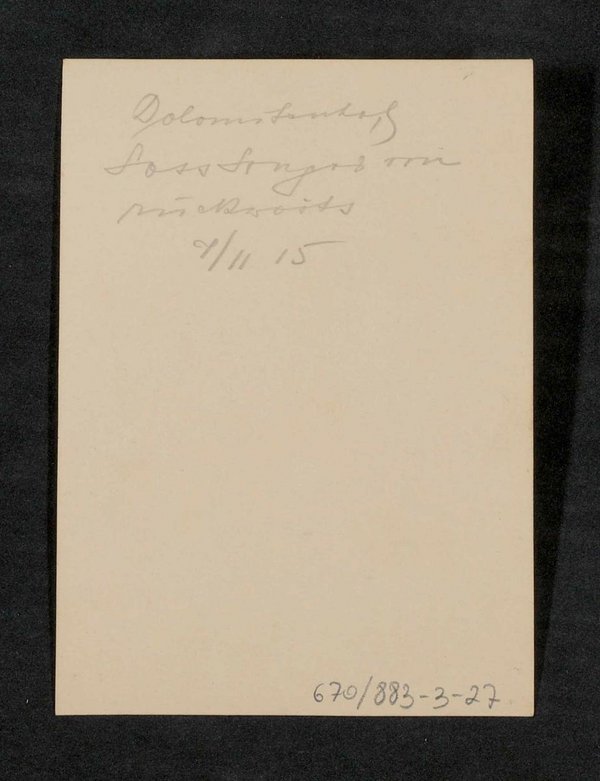 Dolomitenhof
Sass Songer von
rückwärts
9/11 15
670/883-3-27